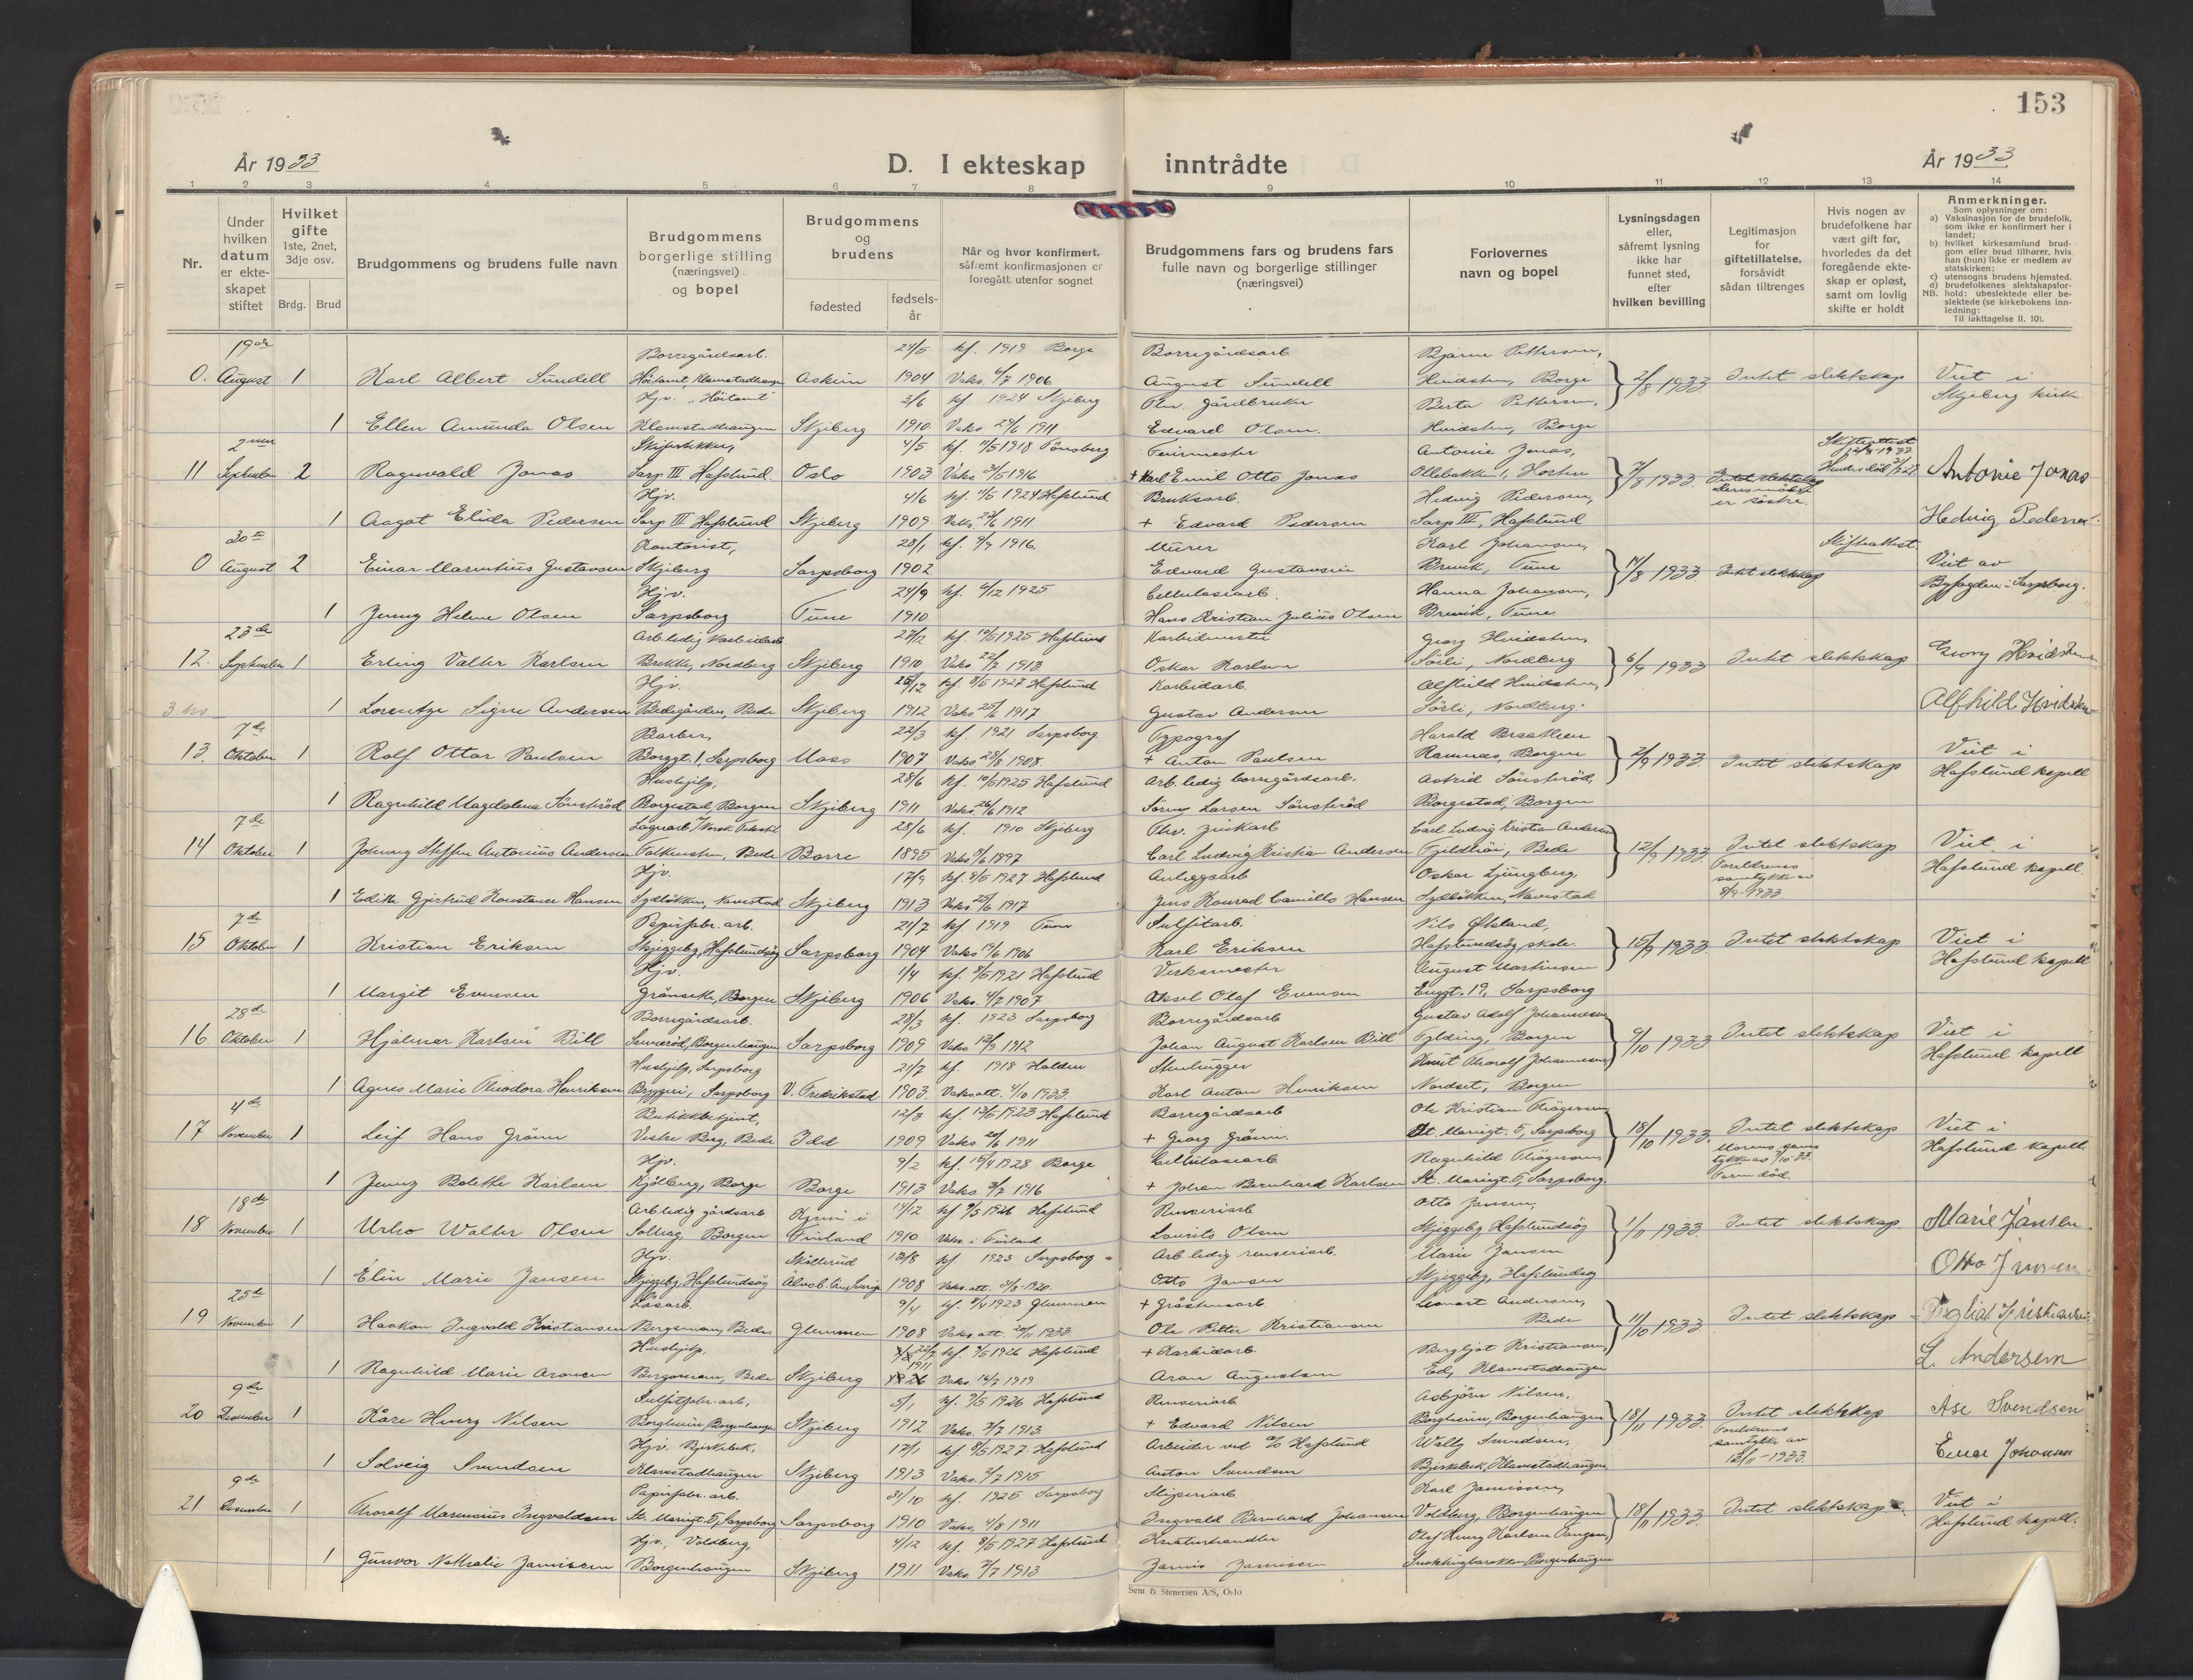 153
År 1933
D. I ekteskap inntrådte
År 1933
1 2 3 4 5 6 7 8 9 10 11 12 13 14
Nr.
Under hvilken datum er ekteskapet stiftet
Hvilket gifte 1ste, 2net, 3dje osv.
Brdg. Brud
Brudgommens og brudens fulle navn
Brudgommens borgerlige stilling (næringsvei) og bopel
Brudgommens og brudens
fødested
fødsels-år
Når og hvor konfirmert, såfremt konfirmasjonen er foregått utenfor sognet
Brudgommens fars og brudens fars fulle navn og borgerlige stillinger (næringsvei)
Forlovernes navn og bopel
Lysningsdagen eller, såfremt lysning ikke har funnet sted, efter hvilken bevilling
Legitimasjon for giftetillatelse, forsåvidt sådan tiltrenges
Hvis nogen av brudefolkene har vært gift før, hvorledes da det foregående ekteskap er opløst, samt om lovlig skifte er holdt
Anmerkninger.
Som oplysninger om:
a) Vaksinasjon for de brudefolk, som ikke er konfirmert her i landet;
b) hvilket kirkesamfund brudgom eller brud tilhører, hvis han (hun) ikke er medlem av statskirken;
c) utensogns brudens hjemsted.
d) brudefolkenes slektskapsforhold: ubeslektede eller beslektede (se kirkebokens innledning:
NB. Til iakttagelse II. 10).
19de Borregårdsarb. 24/5 kf. 1919 Borge Borregårdsarb Bjarne Pettersen,
0. August 1 Karl Albert Sundell Askim 1904 Vaks. 4/7 1906 August Sundell Hvidsten, Borge 2/8 1933 Intet slektskap Viet i
Hjv. "Höitomt" 3/6 kf. 1924 Skjeberg Gårdbruker Berta Pettersen, Skjeberg kirke
1 Ellen Amunda Olsen Klavestadhaugen Skjeberg 1910 Vaks 24/6 1911 Edvard Olsen. Hvidsten, Borge
4/5 kf. 1918 Tönsberg Feiermester Antonie Jonas,
11 September 2 Ragnvald Jonas Sarp III Hafslund. Oslo 1903 Vaks. 3/5 1916 + Karl Emil Otto Jonas Ollebakken 1, Horten 7/8 1933. Antonie Jonas
Hjv. 4/6 1924 Hafslund Bruksarb. Hedvig Pedersen,
1 Aagot Elida Pedersen Sarp III Hafslund Skjeberg 1909 Vaks. 1911 + Edvard Pedersen Sarp III, Hafslund er söstre. Hedvig Pedersen.
30te Kontorist, 28/1 kf. 1916. Murer Karl Johansen, Skifteattest
0 August 2 Einar Marentius Gustavsen Skjeberg Sarpsborg 1902 Edvard Gustavsen Brevik, Tune 14/8 1933. Intet slektskap Viet av
Hjv. 24/9 kf. 6/12 1925 Cellulosearb. Hanna Johansen, Byfogden i Sarpsborg.
1 Jenny Helene Olsen Sarpsborg Tune 1910 Hans Kristian Julius Olsen Brevik, Tune
23de Arb.ledig Karbidarb 27/12 kf. 1925 Hafslund Karbidmester Georg Hvidsten,
12. September 1 Erling Valter Karlsen Brekke, Nordberg Skjeberg 1910 Vaks 1913 Oskar Karlsen Sörli, Nordberg 6/9 1933 Intet slektskap Georg Hvidsten
Hjv. 26/12 kf. 8/5 1927 Hafslund Karbidarb. Alfhild Hvidsten,
1 Lorentze Signe Andersen Bedegården, Bede Skjeberg 1912 Vaks. 25/6 1917 Gustav Andersen Sörli, Nordberg. Alfhild Hvidsten
7de Barber, 22/3 kf. 1921 Sarpsborg Typograf Harald
13. Oktober 1 Rolf Ottar Paulsen Borggt. 1, Sarpsborg Moss 1907 Vaks. 28/8 1908. + Anton Paulsen Ramnes, Borgen 2/9 1933. Intet slektskap Viet i
Hushjelp, 28/6 kf. 1925 Hafslund Arb.ledig borregårdsarb. Astrid Sönsteröd, Hafslund kapell
1 Ragnhild Magdalena Sönsteröd Borgestad, Borgen Skjeberg 1911 Vaks. 26/6 1912 Sören Larsen Sönsteröd Borgestad, Borgen
7de 28/6 kf. 1910 Skjeberg Carl Ludvig Kristian Andersen
14 Oktober 1 Johnny Steffen Antonius Andersen Falkensten, Bede Borre 1895 Vaks 1897 Carl Ludvig Kristian Andersen Fjeldhöi, Bede 12/9 1933 Intet slektskap Viet i
Hjv. 17/9 kf. 8/5 1927 Hafslund Anleggsarb Oskar Ljungberg, Foreldrenes samtykke av Hafslund kapell.
1 Edith Gjertrud Konstance Hansen Navestad Skjeberg 1913 Vaks. 25/6 1917 Jens Konrad Camillo Hansen Navestad 8/9-1933
7de Papirfabr. arb. 21/7 kf 1919 Tune Sulfitarb. Nils Økland,
15 Oktober 1 Kristian Eriksen Skjeggeby, Hafslundsøy Sarpsborg 1904 Vaks 1906 Karl Eriksen Hafslundsøy skole. 15/9 1933 Intet slektskap Viet i
Hjv. 1/4 kf. 1921 Hafslund Verksmester August Martinsen Hafslund kapell
1 Margit Evensen Grönsette, Borgen Skjeberg 1906 Vaks. 4/7 1907 Aksel Olaf Evensen Enggt. 19, Sarpsborg
28de Borregårdsarb. 28/3 kf. 1923 Sarpsborg Borregårdsarb Gustav Adolf Johannesen
16 Oktober 1 Hjalmar Karlsen Bill Borgenhaugen Sarpsborg 1909 Vaks 1912 Johan August Karlsen Bill Fylding, Borgen 9/10 1933 Intet slektskap Viet i
Hushjelp, Sarpsborg 21/7 kf 1918 Halden Stenhugger Knut Thoralf Johannesen Hafslund kapell
1 Agnes Marie Theodora Henriksen Bryggeri, Sarpsborg V. Fredrikstad 1903. Vaksatt. 4/10 1933. Karl Anton Henriksen Nordset, Borgen
4de Butikkbetjent, 12/3 kf. 1923 Hafslund Borregårdsarb Ole Kristian Thögersen
17 November 1 Leif Hans Grönn Vestre Borg, Bede Idd 1909 Vaks 1911 + Georg Grönn. St. Mariegt. 5, Sarpsborg 18/10 1933. Intet slektskap Viet i
Hjv. 9/2 kf. 15/4 1928 Borge Cellulosearb Ragnhild Thögersen, Hafslund kapell
1 Jenny Bolette Karlsen Kjölberg, Borge Borge 1913 Vaks. 3/7 1916 + Johan Bernhard Karlsen St. Mariegt. 5, Sarpsborg. Faren död.
18de Arbledig gårdsarb 14/12 kf 1926 Hafslund Renseriarb Otto Jansen,
18 November 1 Urho Walter Olsen Solhaug Borgen Kymi i Finland 1910 Vaks. i Finland Laurits Olsen Skjeggeby Hafslundsøy 1/11 1933. Intet slektskap. Marie Jansen.
Hjv. 13/8 kf 1923 Sarpsborg Arb.ledig renseriarb. Marie Jansen Otto Jansen
1 Elin Marie Jansen Skjeggeby, Hafslundsøy 1908 Vaks.att. 1920. Otto Jansen Skjeggeby, Hafslundsøy
25de Løsarb. 9/4 kf. 1923 Glemmen + Gråstensarb Lennart Andersen,
19 November 1 Haakon Ingvald Kristiansen Bergsmoen, Bede Glemmen 1908 Vaks att. 1933. Ole Petter Kristiansen Bede 11/10 1933 Intet slektskap Bergliot Kristiansen
Hushjelp. 22/7 kf. 1926 Hafslund + Karbidarb Bergljot Kristiansen, L. Andersen
1 Ragnhild Marie Aronsen Bergsmoen, Bede Skjeberg 1911 Vaks. 14/7 1919 Aron Augustsen Ed, Klavestadhaugen
9de Sulfitfabr. arb, 5/1 kf. 1926 Hafslund Renseriarb Asbjörn Nilsen.
20 Desember 1 Kåre Henry Nilsen Borgheim, Borgenhaugen Skjeberg 1912 Vaks. 3/7 1913 + Edvard Nilsen Borgheim, Borgenhaugen 18/11 1933. Intet slektskap Åse Svendsen
Hjv. Bjerkebek, 17/1 kf 8/5 1927 Hafslund Arbeider ved Hafslund Wally Svendsen, Foreldrenes samtykke av
1 Solveig Svendsen Klavestadhaugen Skjeberg 1913 Vaks. 1915 Anton Svendsen Bjerkebek, Klavestadhaugen 13/11-1933. Einar Johansen
9de Papirfabr. arb. 31/10 kf. 1925 Sarpsborg Sliperiarb Karl Jamissen,
21 Desember 1 Thoralf Marensius Ingvaldsen St. Mariegt. 5, Sarpsborg Sarpsborg 1910 Vaks. 4/8 1911 Ingvald Bernhard Johansen Voldberg, Borgenhaugen 18/11 1933. Intet slektskap. Viet i
Hjv., Voldberg, 4/12 kf. 8/5 1927 Hafslund Kreaturhandler Olaf Henry Karlsen Vangen, Hafslund kapell.
1 Gunvor Nathalie Jamissen Borgenhaugen Skjeberg 1911 Vaks. 1913 Jamis Jamissen Borgenhaugen
Sem & Stenersen A/S, Oslo